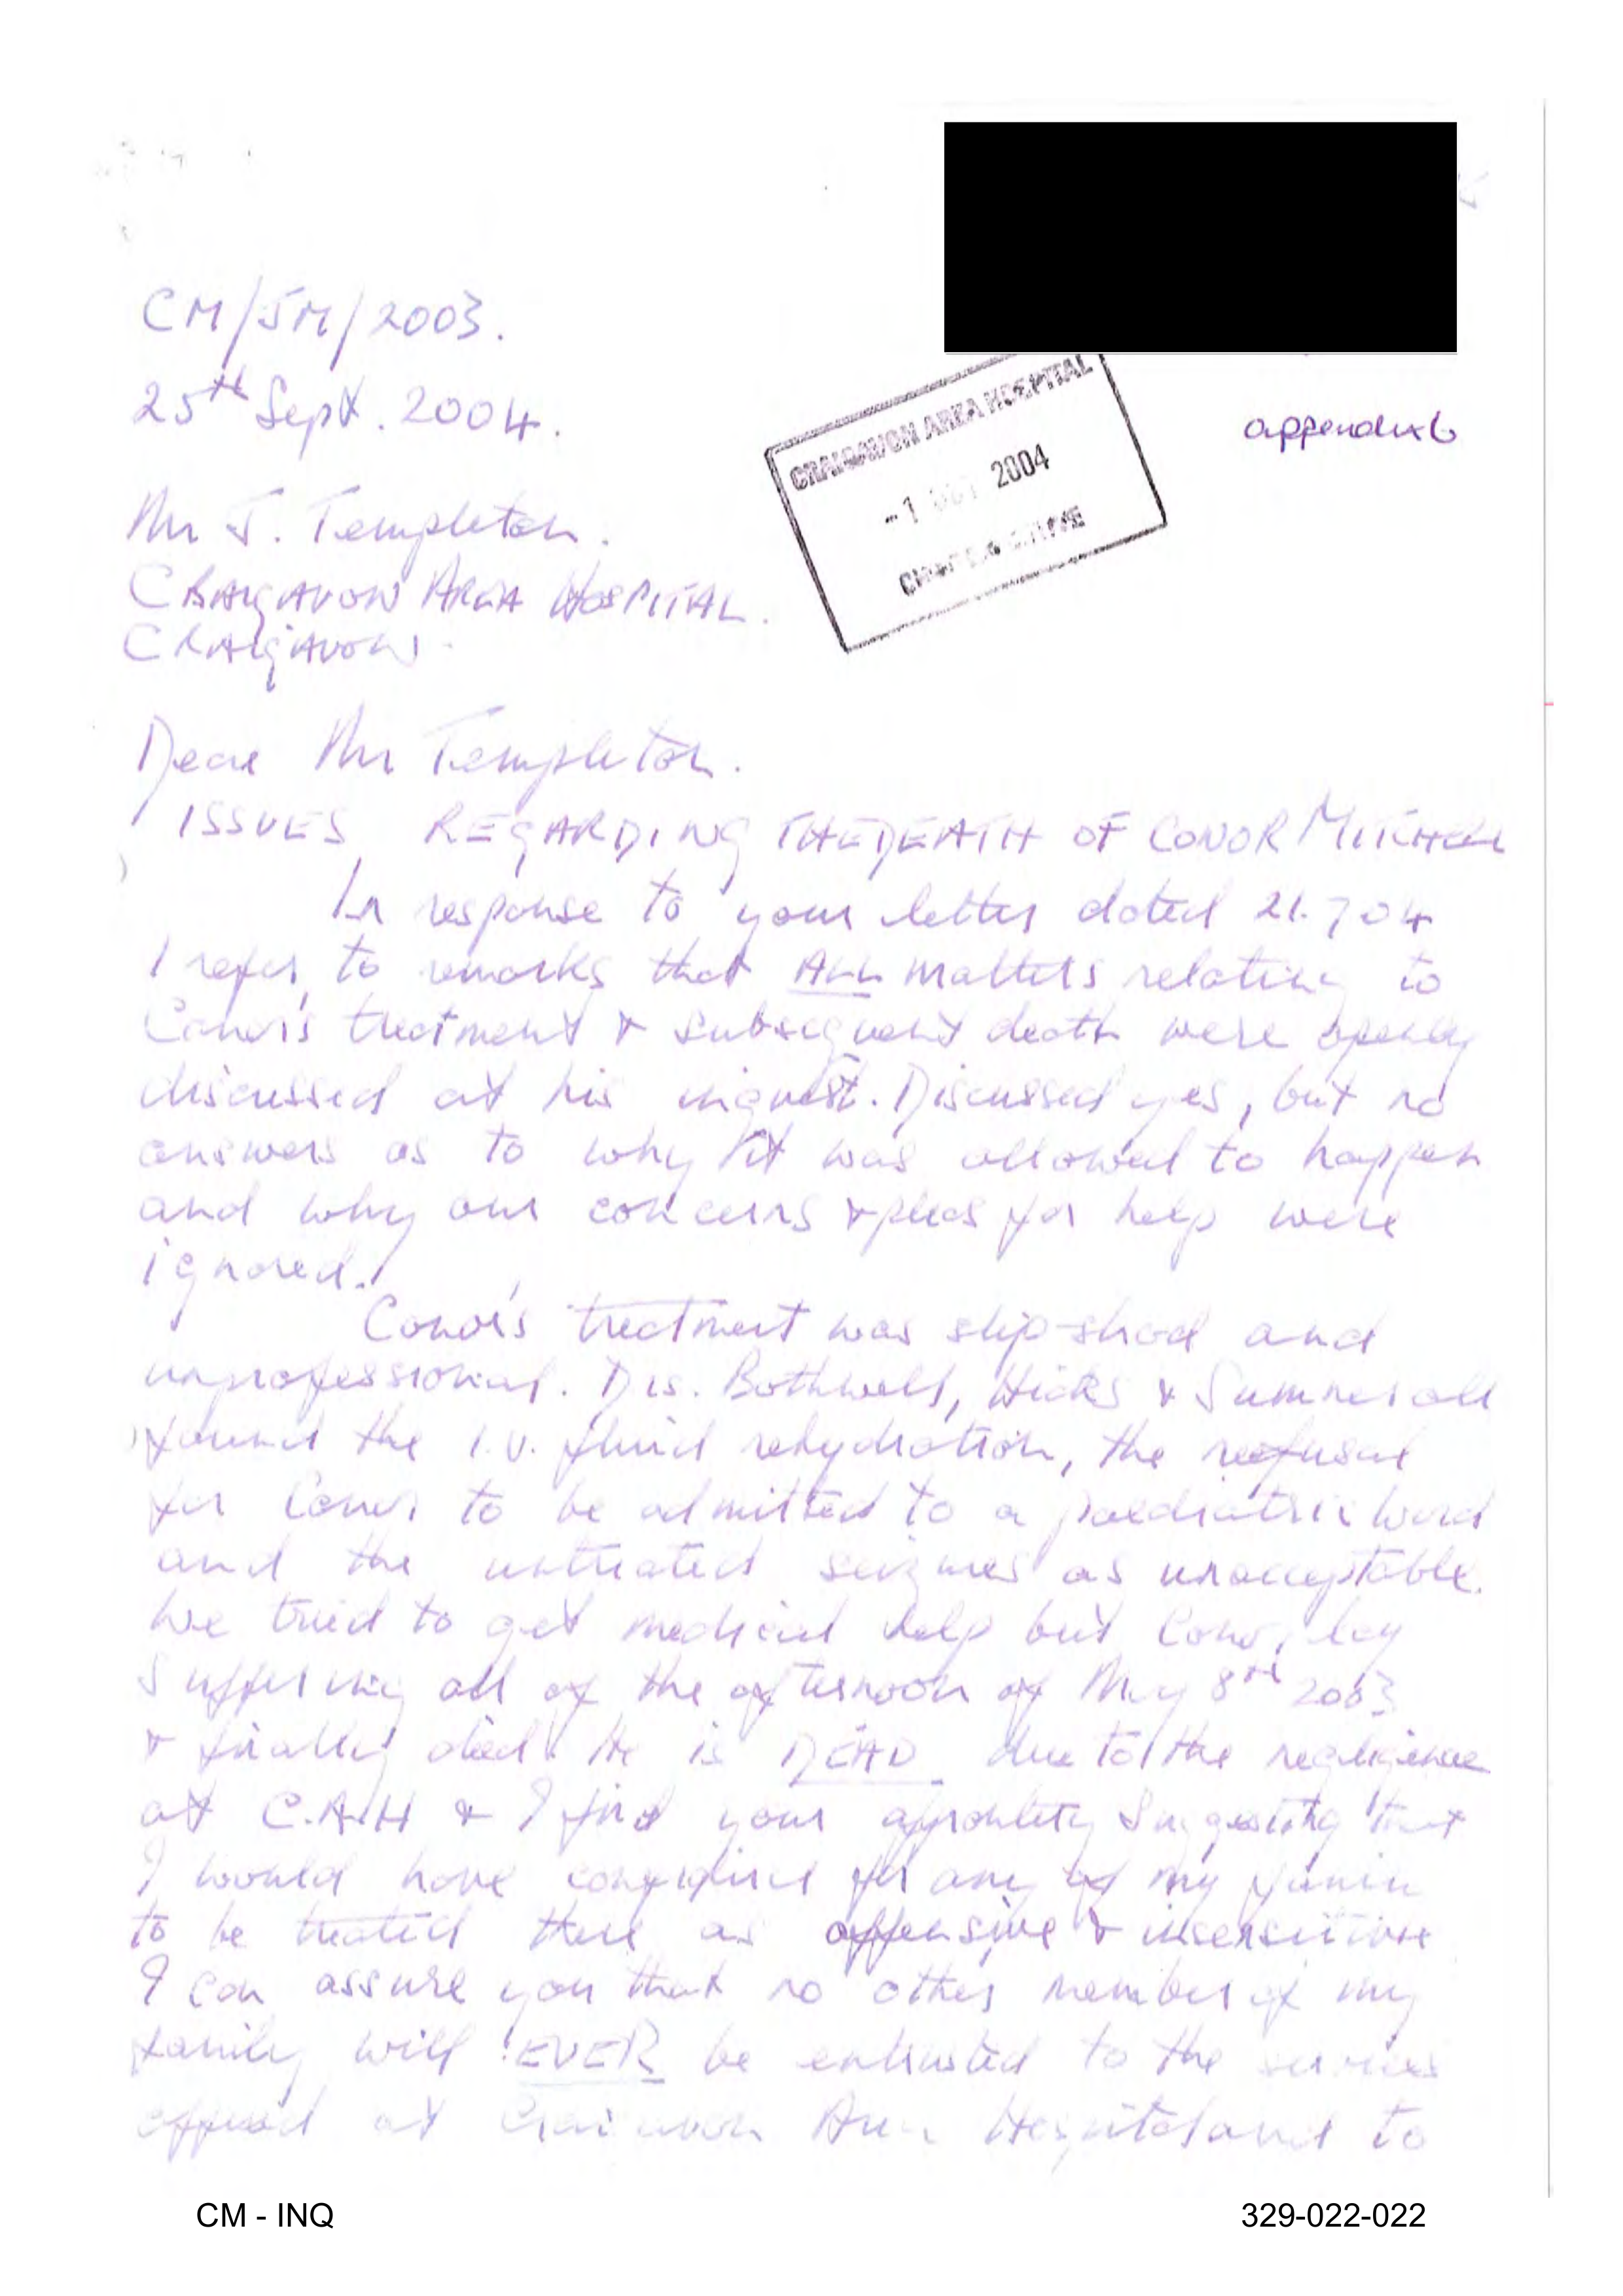 CM/JM/2003.
25th Sept. 2004.
appendix 6
CRAIGAVON AREA HOSPITAL
-1 OCT 2004
CHIEF EXECUTIVE
Mr J. Templeton.
CRAIGAVON AREA HOSPITAL.
CRAIGAVON.
Dear Mr Templeton.
ISSUES REGARDING THE DEATH OF CONOR MITCHELL
In response to your letter dated 21.7 04
I refer to remarks that ALL matters relating to
Conor's treatment & subsequent death were openly
discussed at his inquest. Discussed yes, but no
answers as to why it was allowed to happen
and why our concerns & pleas for help were
ignored.
Conor's treatment was slip-shod and
unprofessional. Drs. Bothwell, Hicks & Sumner all
found the I.V. fluid rehydration, the refusal
for Conor to be admitted to a paediatric ward
and the untreated seizures as unacceptable.
We tried to get medical help but Conor lay
suffering all of the afternoon of May 8th 2003
& finally died. He is DEAD due to the negligence
at C.A.H & I find your suggesting that
I would have confidence for any of my family
to be treated there as offensive & insensitive
I can assure you that no other member of my
family will EVER be entrusted to the services
offered at Craigavon Area Hospital and to
CM - INQ
329-022-022